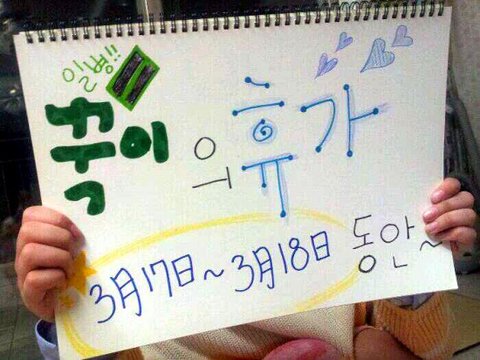 일병!!
꾹이의 휴가
3月17日~3月18日 동안~